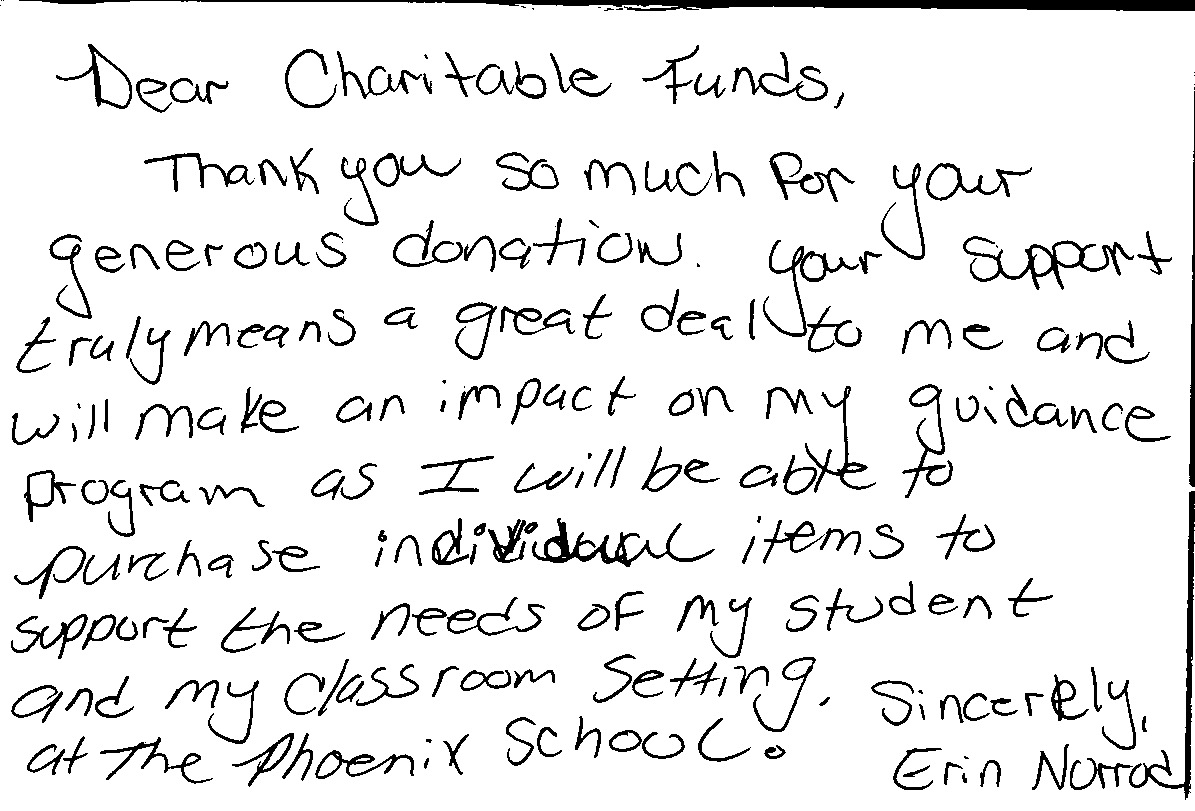 Dear Charitable Funds,
Thank you so much for your
generous donation. your support
truly means a great deal to me and
will make an impact on my guidance
program as I will be able to
purchase individual items to
support the needs of my student
and my classroom setting.
at The Phoenix School.
Sincerely,
Erin Norrod